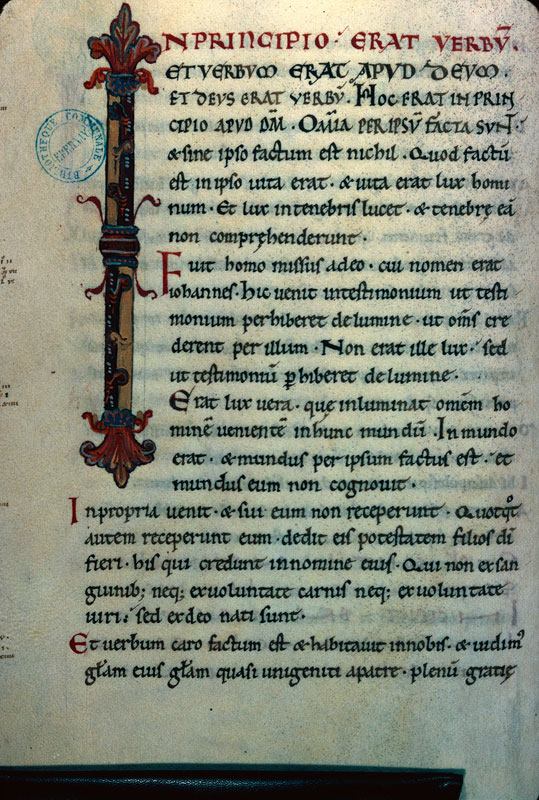 IN PRINCIPIO: ERAT VERBV̄.
ET VERBVM ERAT APVD DEVM.
ET DEVS ERAT VERBV̄. HOC ERAT IN PRIN
CIPIO APVD DM̄. OMĪA PER IPSV̄ FACTA SVNT.
& sine ipso factum est nichil. Quod factū
est in ipso uita erat. & uita erat lux homi
num. Et lux in tenebris lucet. & tenebrę eā
non comprehenderunt.
Fuit homo missus adeo. cui nomen erat
iohannes. hic uenit intestimonium ut testi
monium perhiberet delumine. ut om̄s cre
derent per illum. Non erat ille lux. sed
ut testimoniū ꝑhiberet delumine.
Erat lux uera. que inluminat omēm ho
minē uenientē inhunc mundū. In mundo
erat. & mundus per ipsum factus est. et
mundus eum non cognouit.
Inpropria uenit. & sui eum non receperunt. Quotqͦt
autem receperunt eum. dedit eis potestatem filios dī
fieri. his qui credunt innomine eius. Qui non exsan
guinib; neq; exuoluntate carnis neq; exuoluntate
uiri. sed exdeo nati sunt.
Et uerbum caro factum est & habitauit innobis. & uidimꝰ
glām eius glām quasi unigeniti apatre. plenū gratię
BIBLIOTHEQUE COMMUNALE